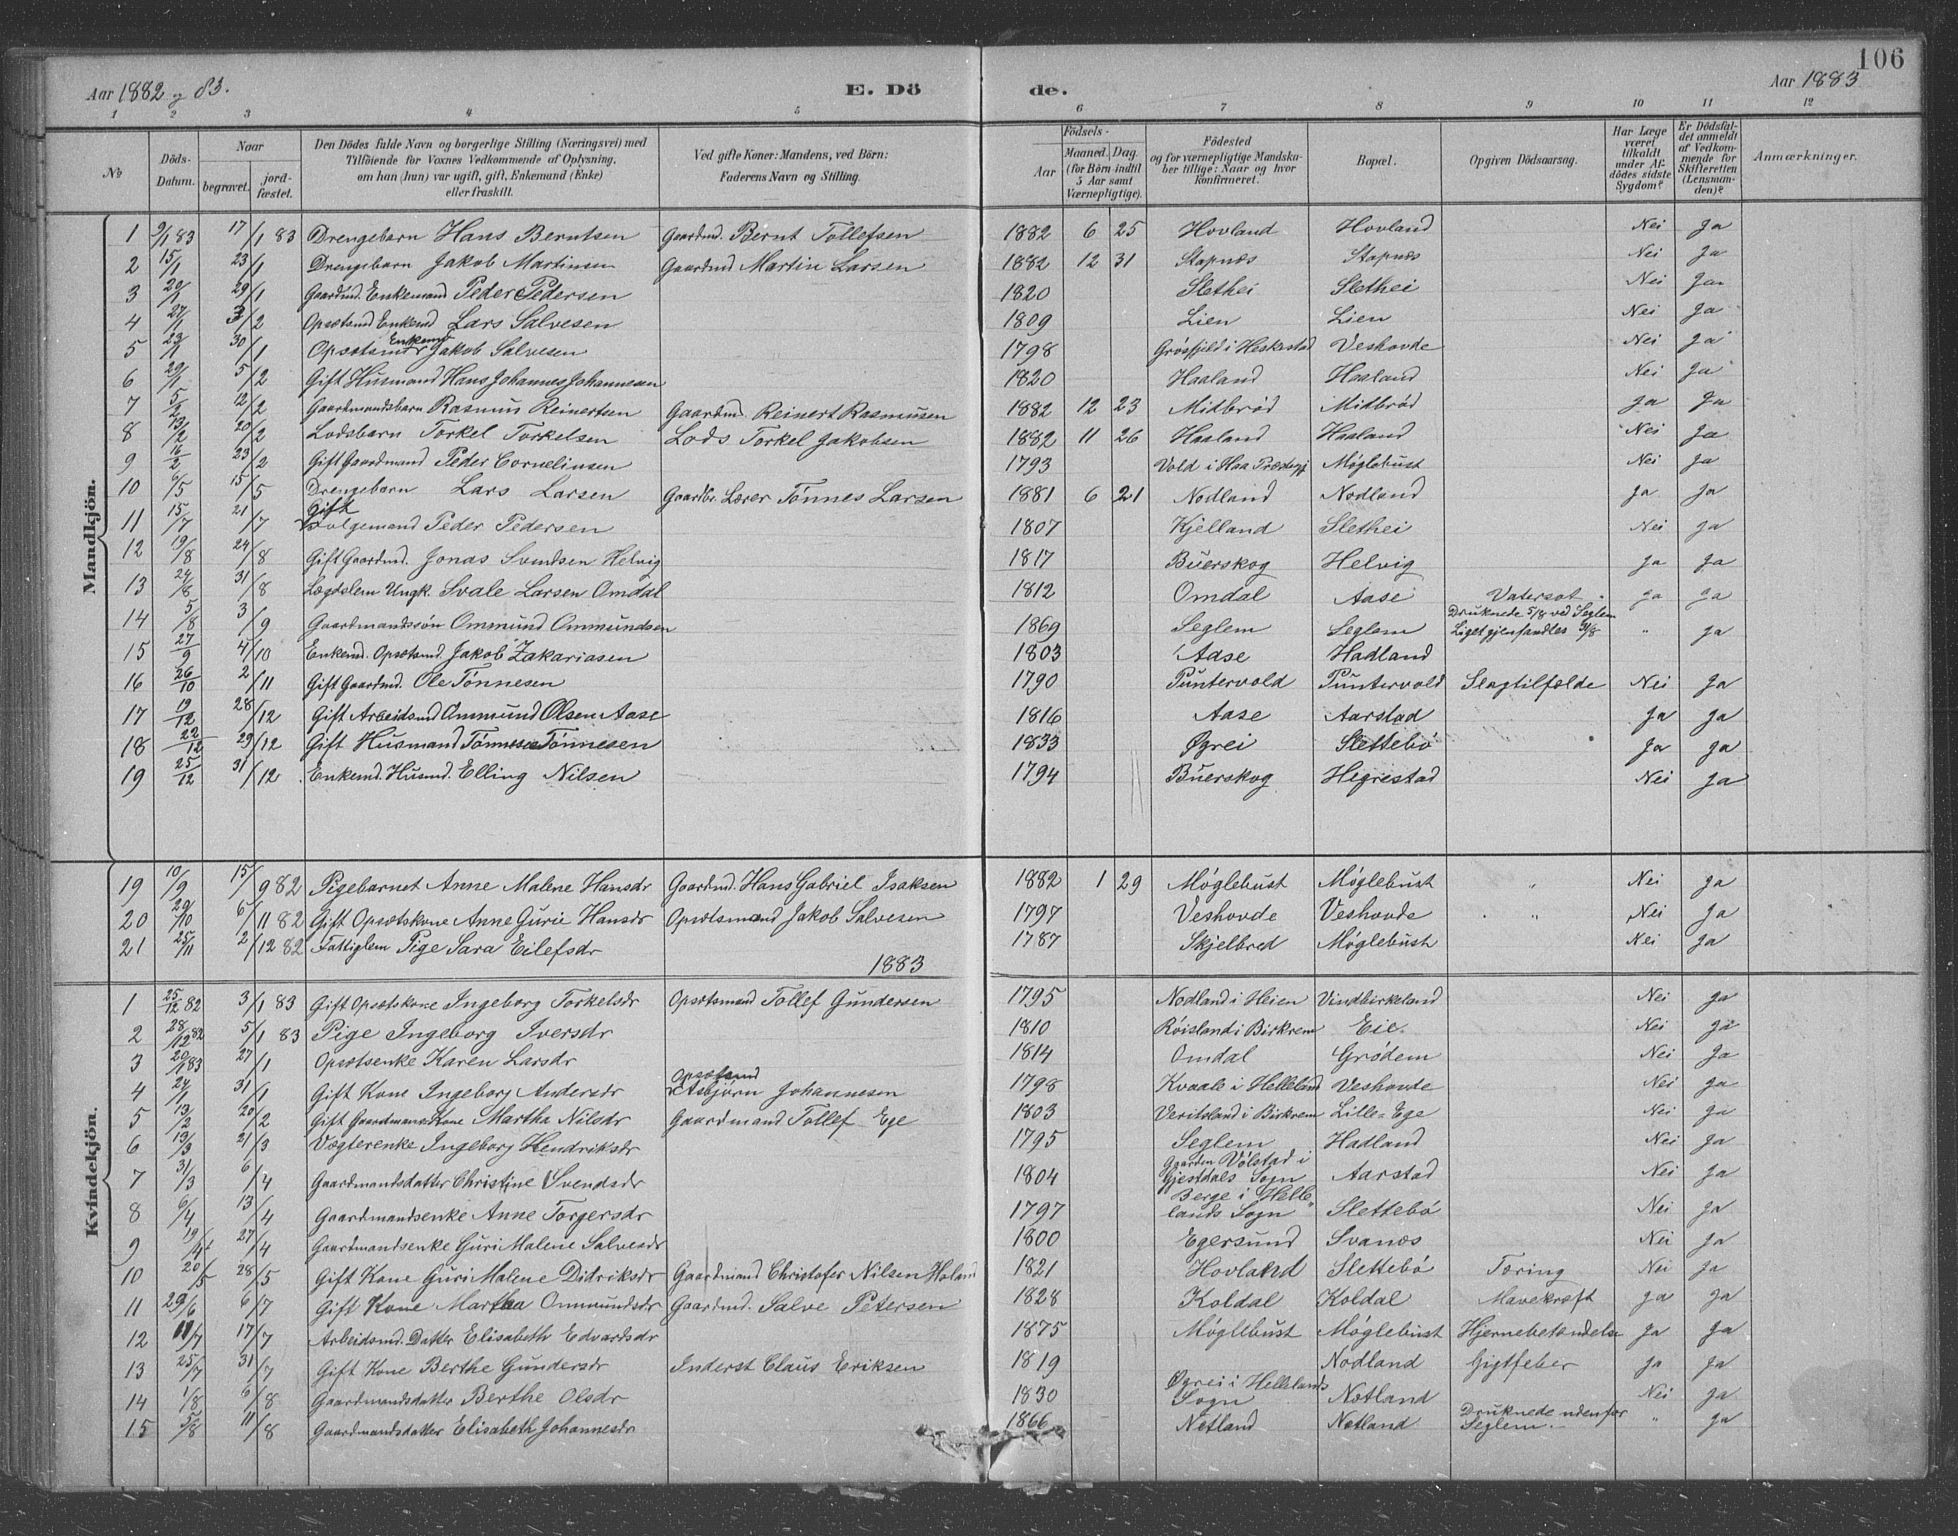 106
Aar 1882 og 83. E. Dö de. Aar 1883
1 2 3 4 5 6 7 8 9 10 11 12
No
Döds-Datum.
Naar
begravet.
jord-fæstet.
Den Dödes fulde Navn og borgerlige Stilling (Næringsvei) med
Tilföiende for Voxnes Vedkommende af Oplysning,
om han (hun) var ugift, gift, Enkemand (Enke)
eller fraskilt.
Ved gifte Koner: Mandens, ved Börn:
Faderens Navn og Stilling.
Födsels-
Aar
Maaned. Dag
(for Börn indtil
5 Aar samt
Værnepligtige).
Födested
og for værnepligtige Mandska-
ber tillige: Naar og hvor
konfirmeret.
Bopæl.
Opgiven Dödsaarsag.
Har Læge
været
tilkaldt
under Af-
dödes sidste
Sygdom?
Er Dödsfal-
det anmeldt
af Vedkom-
mende for
Skifteretten
(Lensman-
den)?
Anmærkninger.
Mandkjön.
1 9/1 83 17/1 83 Drengebarn Hans Berntsen Gaardmd. Bernt Tollefsen 1882 6 25 Hovland Hovland Nei Ja
2 15/1 23/1 Drengebarn Jakob Martinsen Gaardmd Martin Larsen 1882 12 31 Stapnæs Stapnæs Nei Ja
3 20/1 29/1 Gaardmd. Enkemand Peder Pedersen 1820 Slethei Slethei Nei Ja
4 27/1 3/2 Opsætsmd Enkemd Lars Salvesen 1809 Lien Lien Nei Ja
5 23/1 30/1 Opsætsmd Enkemd Jakob Salvesen 1798 Grøsfjeld i Heskestad Veshovde Nei Ja
6 29/1 5/2 Gift Husmand Hans Johannes Johannesen 1820 Haaland Haaland Nei Ja
7 5/2 12/2 Gaardmandsbarn Rasmus Reinertsen Gaardmd. Reinert Rasmusen 1882 12 23 Midbrød Midbrød Ja Ja
8 13/2 20/2 Lodsbarn Torkel Torkelsen Lods Torkel Jakobsen 1882 11 26 Haaland Haaland Nei Ja
9 16/2 23/2 Gift Gaardmand Peder Cornelius­en 1793 Vold i Haa Præstegj Møglebust Nei Ja
10 6/5 15/5 Drengebarn Lars Larsen Gaardbr. Lærer Tønnes Larsen 1881 6 21 Nodland Nodland Ja Ja
11 15/7 21/7 Gift Folgemand Peder Pedersen 1807 Kjelland Slethei Nei Ja
12 19/8 24/8 Gift Gaardmd. Jonas Svendsen Helvig 1817 Buerskog Helvig Ja Ja
13 24/8 31/8 Lægdslem Ungk. Svale Larsen Omdal 1812 Omdal Aase Vatersot Ja Ja
14 5/8 3/9 Gaardmandssøn Ommund Ommundsen 1869 Seglem Seglem Druknede 5/8 ved Seglem Liget gjenfandtes 31/8 " Ja
15 27/9 4/10 Enkemd. Opsætsmd. Jakob Zakariasen 1803 Aase Hadland
16 26/10 2/11 Gift Gaardmd. Ole Tønnesen 1790 Puntervold Puntervold Slagtilfælde Nei Ja
17 19/12 28/12 Gift Arbeidsmd Ommund Olsen Aase 1816 Aase Aarstad Ja Ja
18 22/12 29/12 Gift Husmand Tønnes Tønnesen 1833 Øgrei Slettebø Ja Ja
19 25/12 31/12 Enkemd. Husmd. Elling Nilsen 1794 Buerskog Hegrestad Nei Ja
19 10/9 15/9 82 Pigebarnet Anne Malene Hansdr Gaardmd. Hans Gabriel Isaksen 1882 1 29 Møglebust Møglebust " Nei Ja
20 29/10 6/11 82 Gift Opsætskone Anne Gurie Hansdr Opsætsmand Jakob Salvesen 1797 Veshovde Veshovde " Nei Ja
21 25/11 2/12 82 Fattiglem Pige Sara Eilefsdr 1787 Skjelbred Møglebust Nei Ja
1883
Kvindekjön.
1 25/12 82 3/1 83 Gift Opsætskone Ingeborg Torkelsdr Opsætsmand Tollef Gundersen 1795 Nodland i Heien Vindbirkeland Nei Ja
2 28/12 82 5/1 83 Pige Ingeborg Iversdr 1810 Røisland i Birkrem Eie. Nei Ja
3 20/1 83 27/1 Opsætsenke Karen Larsdr 1814 Omdal Grødem Nei Ja
4 24/1 31/1 Gift Kone Ingeborg Andersdr Opsætsmd Asbjørn Johannesen 1798 Kvaale i Helleland Veshovde Nei Ja
5 13/2 20/2 Gift Gaardmands Kone Martha Nilsdr Gaardmand Tollef Ege 1803 Veritsland i Birkrem Lille-Ege Nei Ja
6 13/3 21/3 Vægterenke Ingeborg Hendriksdr 1795 Seglem Hadland Nei Ja
7 31/3 6/4 Gaardmandsdatter Christine Svendsdr 1804 Gaarden Vølstad i Gjestdals Sogn Aarstad Nei Ja
8 6/4 13/4 Gaardmandsenke Anne Torgersdr 1797 Berge i Hellelands Sogn Slettebø Nei Ja
9 19/4 27/4 Gaardmandsenke Guri Malene Salvesdr 1800 Egersund Svanæs Nei Ja
10 20/5 28/5 Gift Kone Guri Malene Didriksdr Gaardmand Christofer Nilsen Holand 1821 Hovland Slettebø Tæring Nei Ja
11 29/6 6/7 Gift Kone Martha Ommundsdr Gaardmd. Salve Petersen 1828 Koldal Koldal Mavekræft Ja Ja
12 11/7 17/7 Arbeidsmd. Datter Elisabeth Edvardsdr 1875 Møglebust Møglebust Hjernebetændelse Ja Ja
13 25/7 31/7 Gift Kone Berthe Gundersdr Inderst Claus Eriksen 1819 Nodland Gigtfeber Ja Ja
14 1/8 6/8 Gaardmandsdatter Berthe Olsdr 1830 Øgrei i Hellelands Sogn Nætland Nei Ja
15 5/8 11/8 Gaardmandsdatter Elisabeth Johannesdr 1866 Nætland Nætland Druknede udenfor Seglem. " Ja